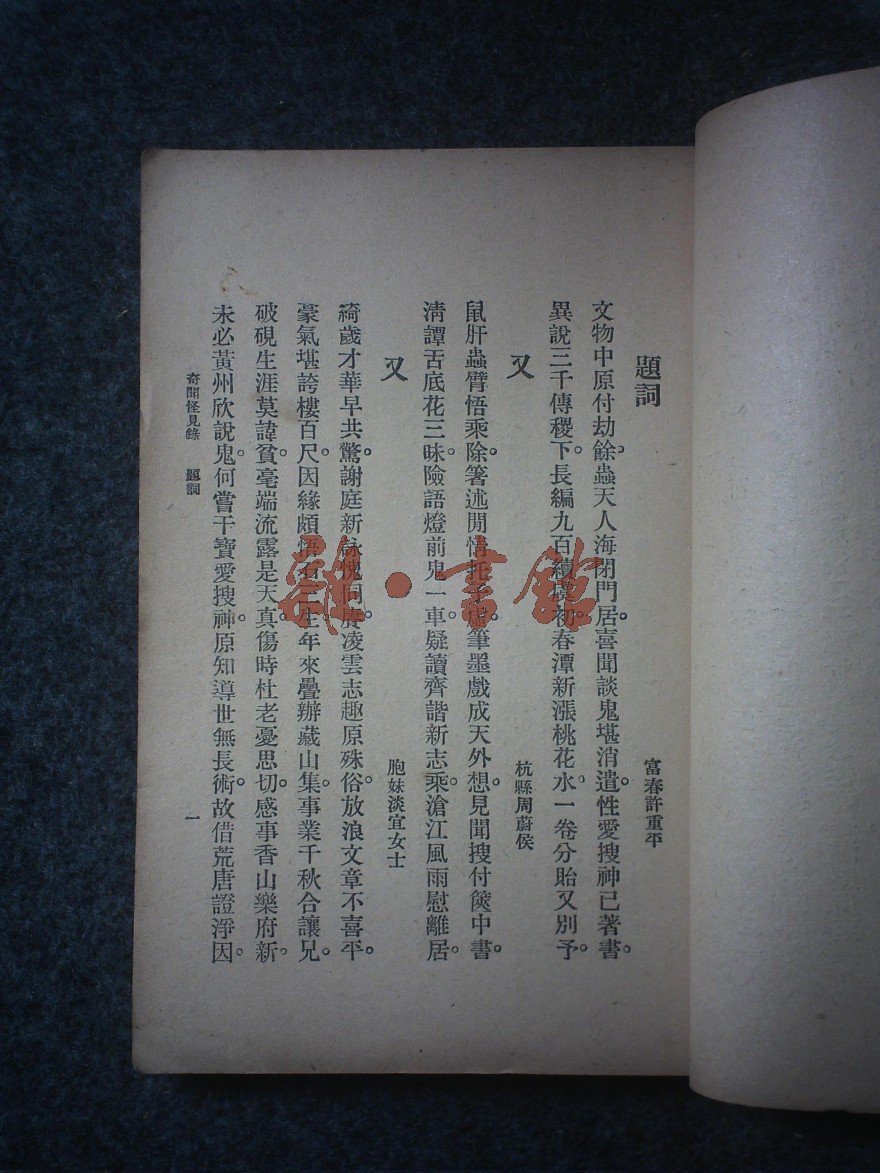 題詞
富春許重平
文物中原付劫餘。蟲天人海閉門居。喜聞談鬼堪消遣。性愛搜神已著書。
異說三千傳稷下。長編九百續虞初。春潭新漲桃花水。一卷分貽又別予。
又
杭縣周蔚侯
鼠肝蟲臂悟乘除。箸述閒情托子虛。筆墨戲成天外想。見聞搜付篋中書。
清譚舌底花三昧。險語燈前鬼一車。疑讀齊諧新志乘。滄江風雨慰離居。
又
胞妹淡宜女士
綺歲才華早共驚。謝庭新詠愧同賡。凌雲志趣原殊俗。放浪文章不喜平。
豪氣堪誇樓百尺。因緣頗悟石三生。年來疊辦藏山集。事業千秋合讓兄。
破硯生涯莫諱貧。毫端流露是天真。傷時杜老憂思切。感事香山樂府新。
未必黃州欣說鬼。何嘗干寶愛搜神。原知導世無長術。故借荒唐證淨因。
奇聞怪見錄 題詞
一
雜·書館